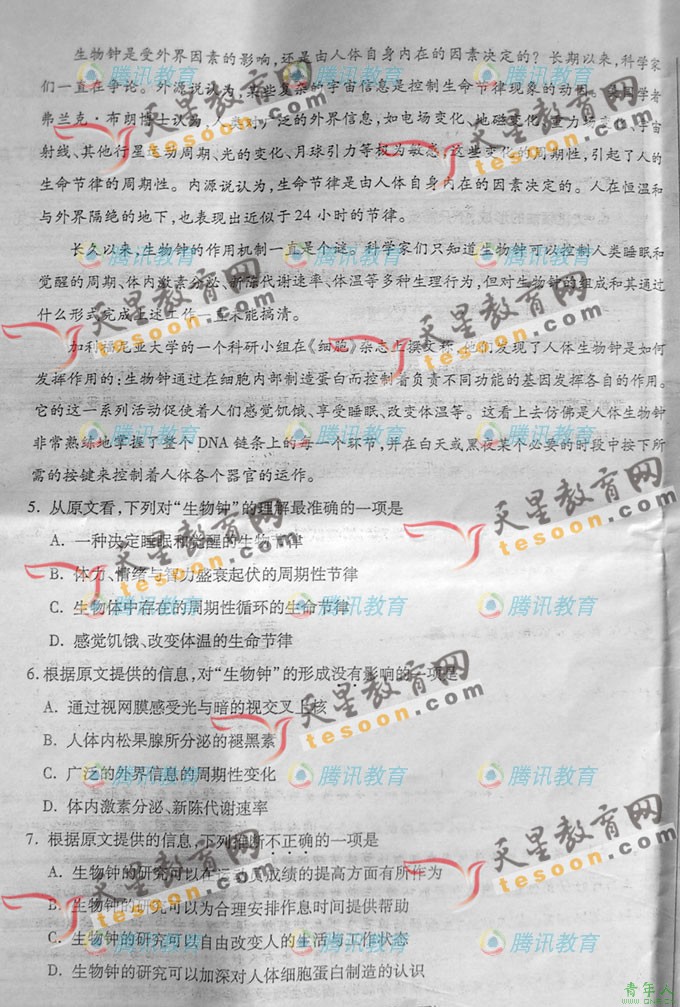 生物钟是受外界因素的影响,还是由人体自身内在的因素决定的?长期以来,科学家
们一直在争论。外源说认为,某些复杂的宇宙信息是控制生命节律现象的动因。
弗兰克·布朗博士认为,人类对广泛的外界信息,如电场变化、地磁变化、重力场变化、宇宙
射线、其他行星运动周期、光的变化、月球引力等极为敏感,这些变化的周期性,引起了人的
生命节律的周期性。内源说认为,生命节律是由人体自身内在的因素决定的。人在恒温和
与外界隔绝的地下,也表现出近似于24小时的节律。
长久以来,生物钟的作用机制一直是个谜。科学家们只知道生物钟可以控制人类睡眠和
觉醒的周期、体内激素分泌、新陈代谢速率、体温等多种生理行为,但对生物钟的组成和其通过
什么形式完成上述工作一直未能搞清。
加利福尼亚大学的一个科研小组在《细胞》杂志上撰文称,他们发现了人体生物钟是如何
发挥作用的:生物钟通过在细胞内部制造蛋白而控制着负责不同功能的基因发挥各自的作用。
它的这一系列活动促使着人们感觉饥饿、享受睡眠、改变体温等。这看上去仿佛是人体生物钟
非常熟练地掌握了整个DNA链条上的每一个环节,并在白天或黑夜某个必要的时段中按下所
需的按键来控制着人体各个器官的运作。
5. 从原文看,下列对“生物钟”的理解最准确的一项是
A. 一种决定睡眠和觉醒的生物节律
B. 体力、情绪与智力盛衰起伏的周期性节律
C. 生物体中存在的周期性循环的生命节律
D. 感觉饥饿、改变体温的生命节律
6. 根据原文提供的信息,对“生物钟”的形成没有影响的一项是
A. 通过视网膜感受光与暗的视交叉上核
B. 人体内松果腺所分泌的褪黑素
C. 广泛的外界信息的周期性变化
D. 体内激素分泌、新陈代谢速率
7. 根据原文提供的信息,下列推断不正确的一项是
A. 生物钟的研究可以在运动员成绩的提高方面有所作为
B. 生物钟的研究可以为合理安排作息时间提供帮助
C. 生物钟的研究可以自由改变人的生活与工作状态
D. 生物钟的研究可以加深对人体细胞蛋白制造的认识
腾讯教育
天星教育网
tesoon.com
青年人